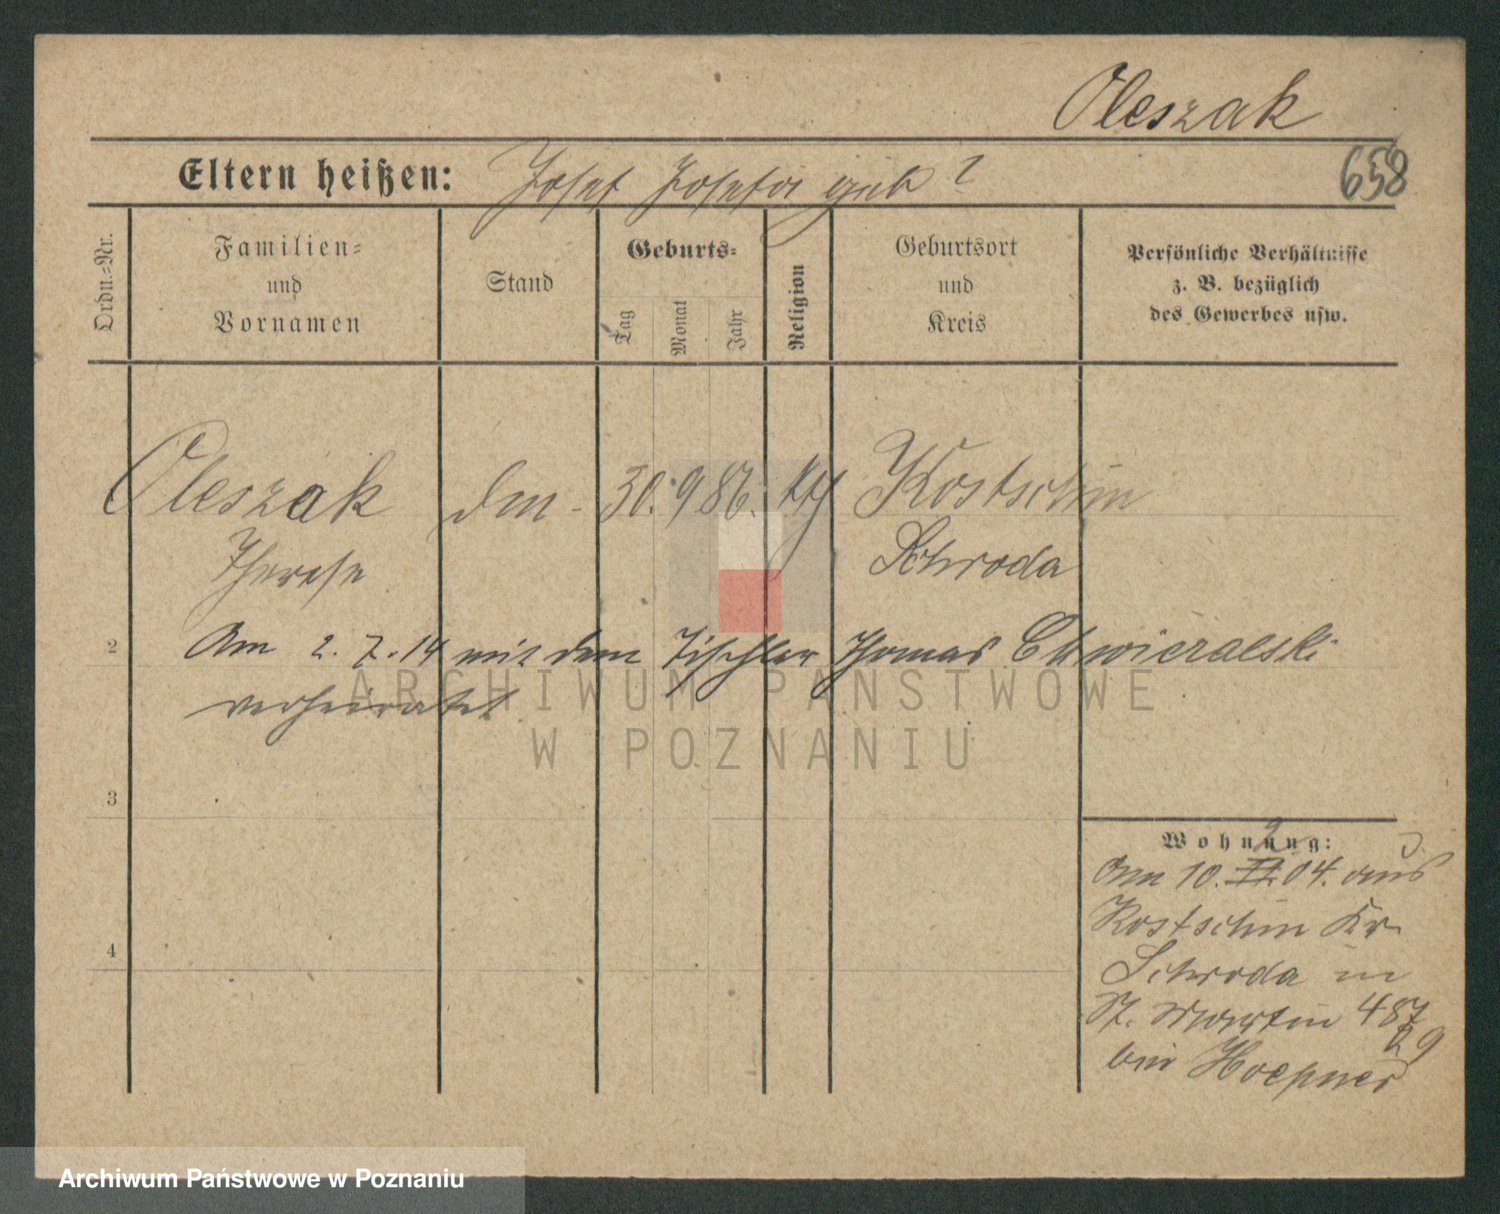 Oleszak
Eltern heißen: Josef Josefa geb ?
658
Ordn.=Nr.
Familien=
und
Vornamen
Stand
Geburts=
Tag
Monat
Jahr
Religion
Geburtsort
und
Kreis
Persönliche Verhältnisse
z. B. bezüglich
des Gewerbes usw.
Oleszak 30. 9 86. kth Kostschin
Therese Schroda
2 Am 2. 7. 14 mit dem Tischler Thomas
verheiratet
3
Wohnung:
Am 10. 04. aus
Kostschin Kr
4 Schroda in
St. Martin
bei Hoepner
ARCHIWUM PAŃSTWOWE
W POZNANIU
Archiwum Państwowe w Poznaniu